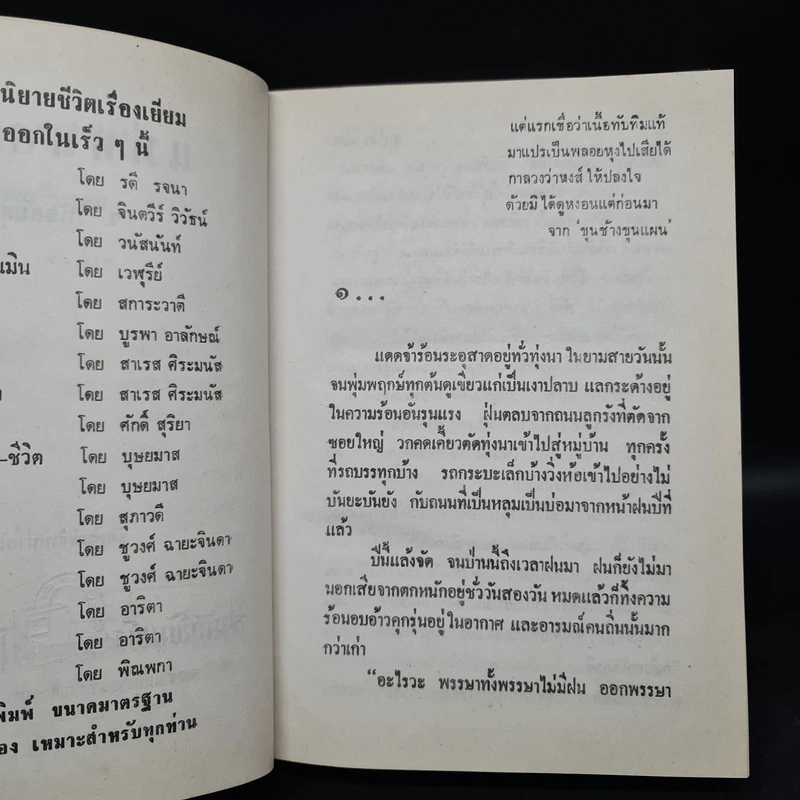 นิยายชีวิตเรื่องเยี่ยม
ออกในเร็ว ๆ นี้
โดย รตี รจนา
โดย จินตวีร์ วิวัธน์
โดย วนัสนันท์
เมิน โดย เวฬุรีย์
โดย สการะวาตี
โดย บูรพา อาลักษณ์
โดย สาเรส ศิระมนัส
โดย สาเรส ศิระมนัส
โดย ศักดิ์ สุริยา
-ชีวิต โดย บุษยมาส
โดย บุษยมาส
โดย สุภาวดี
โดย ชูวงศ์ ฉายะจินดา
โดย ชูวงศ์ ฉายะจินดา
โดย อาริตา
โดย อาริตา
โดย พิณพกา
พิมพ์ ขนาดมาตรฐาน
อง เหมาะสำหรับทุกท่าน
แต่แรกเชื่อว่าเนื้อทับทิมแท้
มาแปรเป็นพลอยหุงไปเสียได้
กาลวงว่าหงส์ ให้ปลงใจ
ด้วยมิได้ดูหงอนแต่ก่อนมา
จาก 'ขุนช้างขุนแผน'
๑...
แดดจ้าร้อนระอุสาดอยู่ทั่วทุ่งนา ในยามสายวันนั้น
จนพุ่มพฤกษ์ทุกต้นดูเขียวแก่เป็นเงาปลาบ แลกระด้างอยู่
ในความร้อนอันรุนแรง ฝุ่นตลบจากถนนลูกรังที่ตัดจาก
ซอยใหญ่ วกคดเคี้ยวตัดทุ่งนาเข้าไปสู่หมู่บ้าน ทุกครั้ง
ที่รถบรรทุกบ้าง รถกระบะเล็กบ้างวิ่งห้อเข้าไปอย่างไม่
บันยะบันยัง กับถนนที่เป็นหลุมเป็นบ่อมาจากหน้าฝนปีที่
แล้ว
ปีนี้แล้งจัด จนป่านนี้ถึงเวลาฝนมา ฝนก็ยังไม่มา
นอกเสียจากตกหนักอยู่ชั่ววันสองวัน หมดแล้วก็ทิ้งความ
ร้อนอบอ้าวคุกรุ่นอยู่ในอากาศ และอารมณ์คนถิ่นนั้นมาก
กว่าเก่า
“อะไรวะ พรรษาทั้งพรรษาไม่มีฝน ออกพรรษา